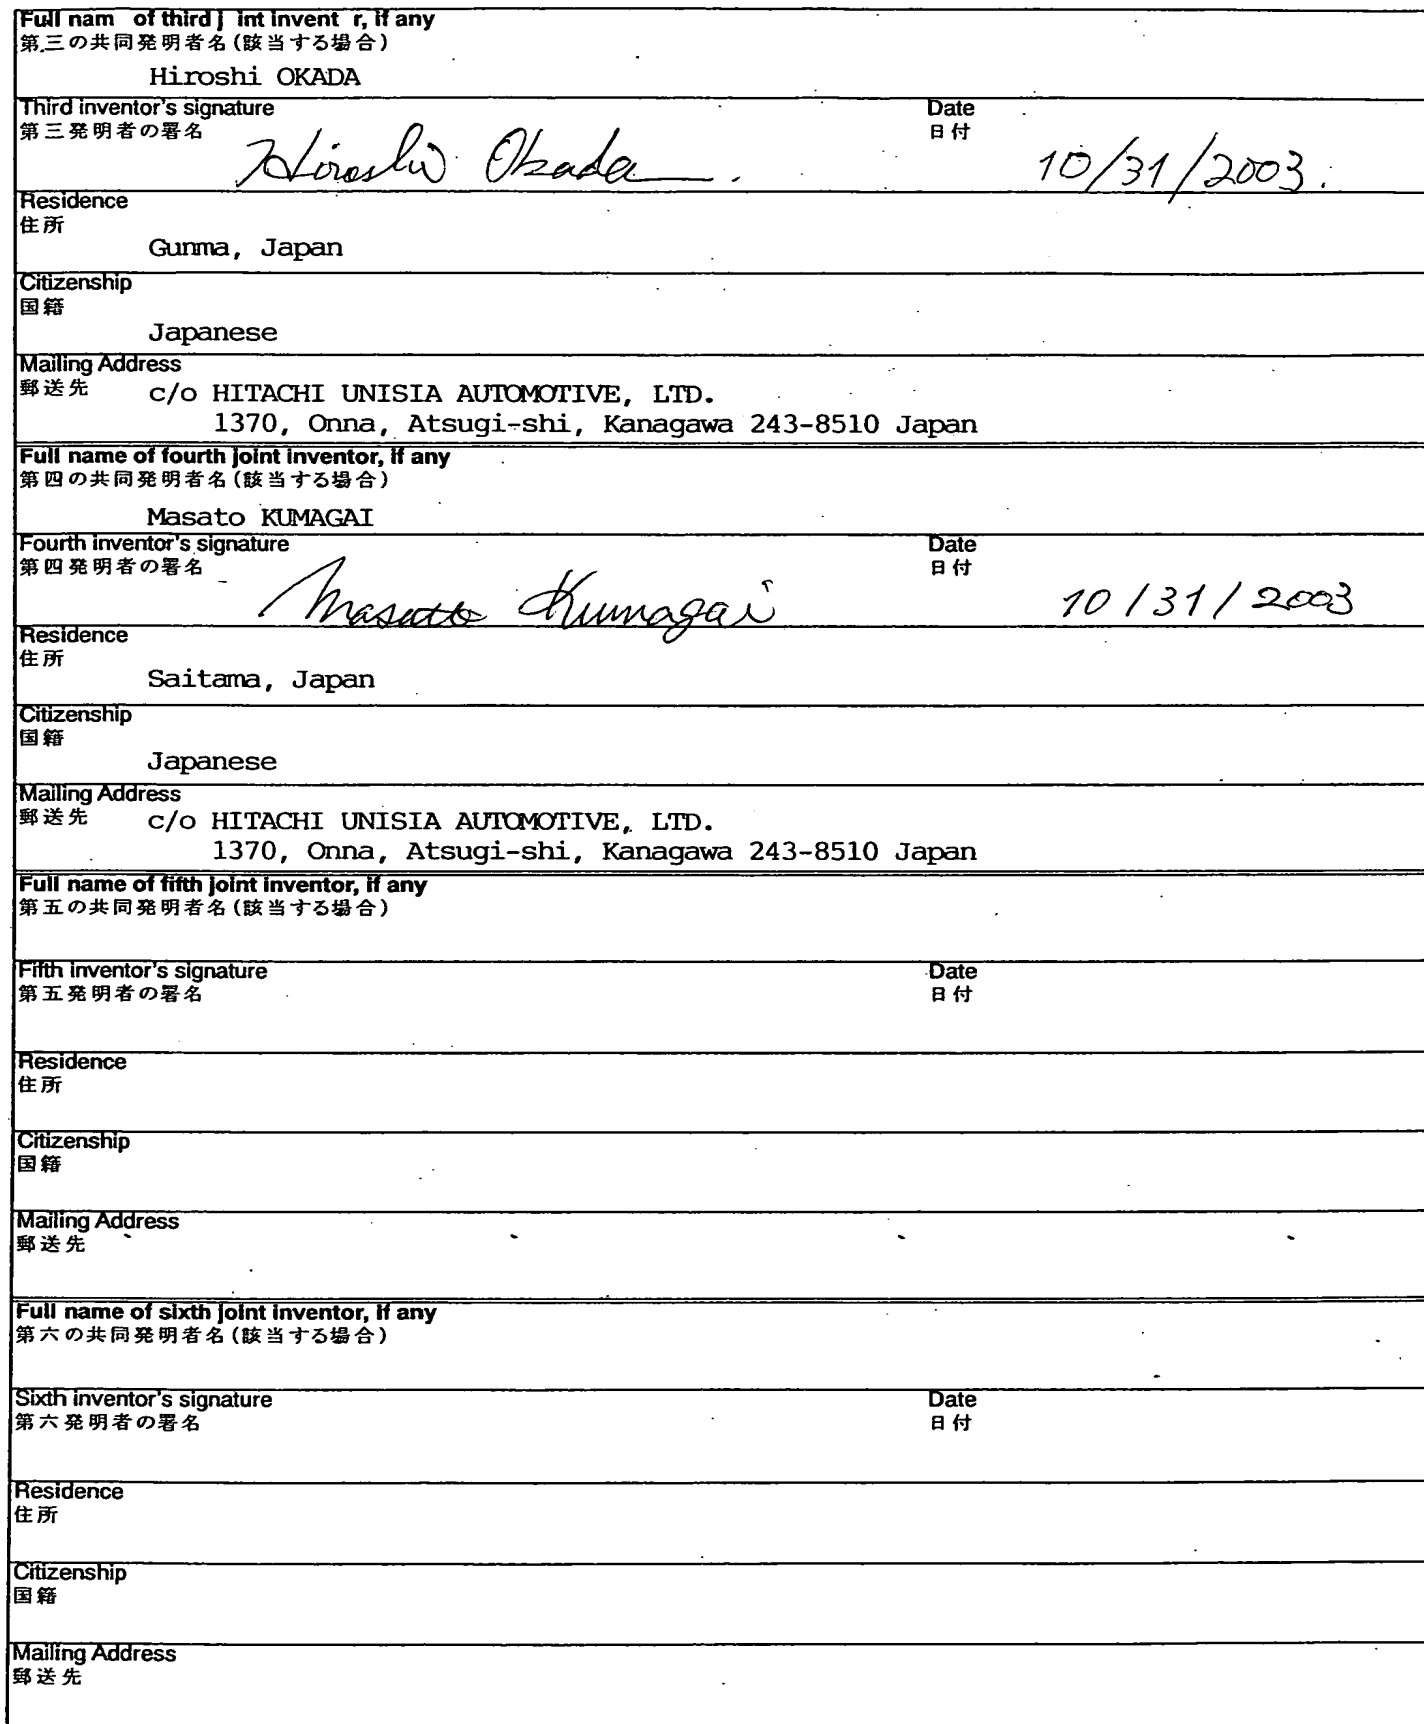 Full nam of third j int invent r, if any
第三の共同発明者名(該当する場合)
Hiroshi OKADA
Third inventor's signature Date
第三発明者の署名 日付
Hiroshi Okada. 10/31/2003.
Residence
住所
Gunma, Japan
Citizenship
国籍
Japanese
Mailing Address
郵送先 c/o HITACHI UNISIA AUTOMOTIVE, LTD.
1370, Onna, Atsugi-shi, Kanagawa 243-8510 Japan
Full name of fourth joint inventor, if any
第四の共同発明者名(該当する場合)
Masato KUMAGAI
Fourth inventor's signature Date
第四発明者の署名 日付
Masato Kumagai 10/31/2003
Residence
住所
Saitama, Japan
Citizenship
国籍
Japanese
Mailing Address
郵送先 c/o HITACHI UNISIA AUTOMOTIVE, LTD.
1370, Onna, Atsugi-shi, Kanagawa 243-8510 Japan
Full name of fifth joint inventor, if any
第五の共同発明者名(該当する場合)
Fifth inventor's signature Date
第五発明者の署名 日付
Residence
住所
Citizenship
国籍
Mailing Address
郵送先
Full name of sixth joint inventor, if any
第六の共同発明者名(該当する場合)
Sixth inventor's signature Date
第六発明者の署名 日付
Residence
住所
Citizenship
国籍
Mailing Address
郵送先